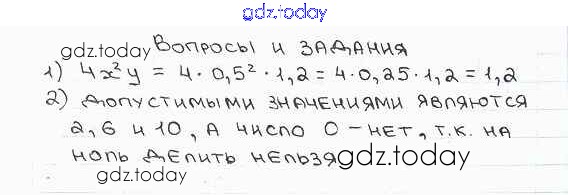 gdz.today
gdz.today Вопросы и задания
1) 4x²y = 4 · 0,5² · 1,2 = 4 · 0,25 · 1,2 = 1,2
2) допустимыми значениями являются
2, 6 и 10, а число 0 – нет, т.к. на
ноль делить нельзя gdz.today
gdz.today